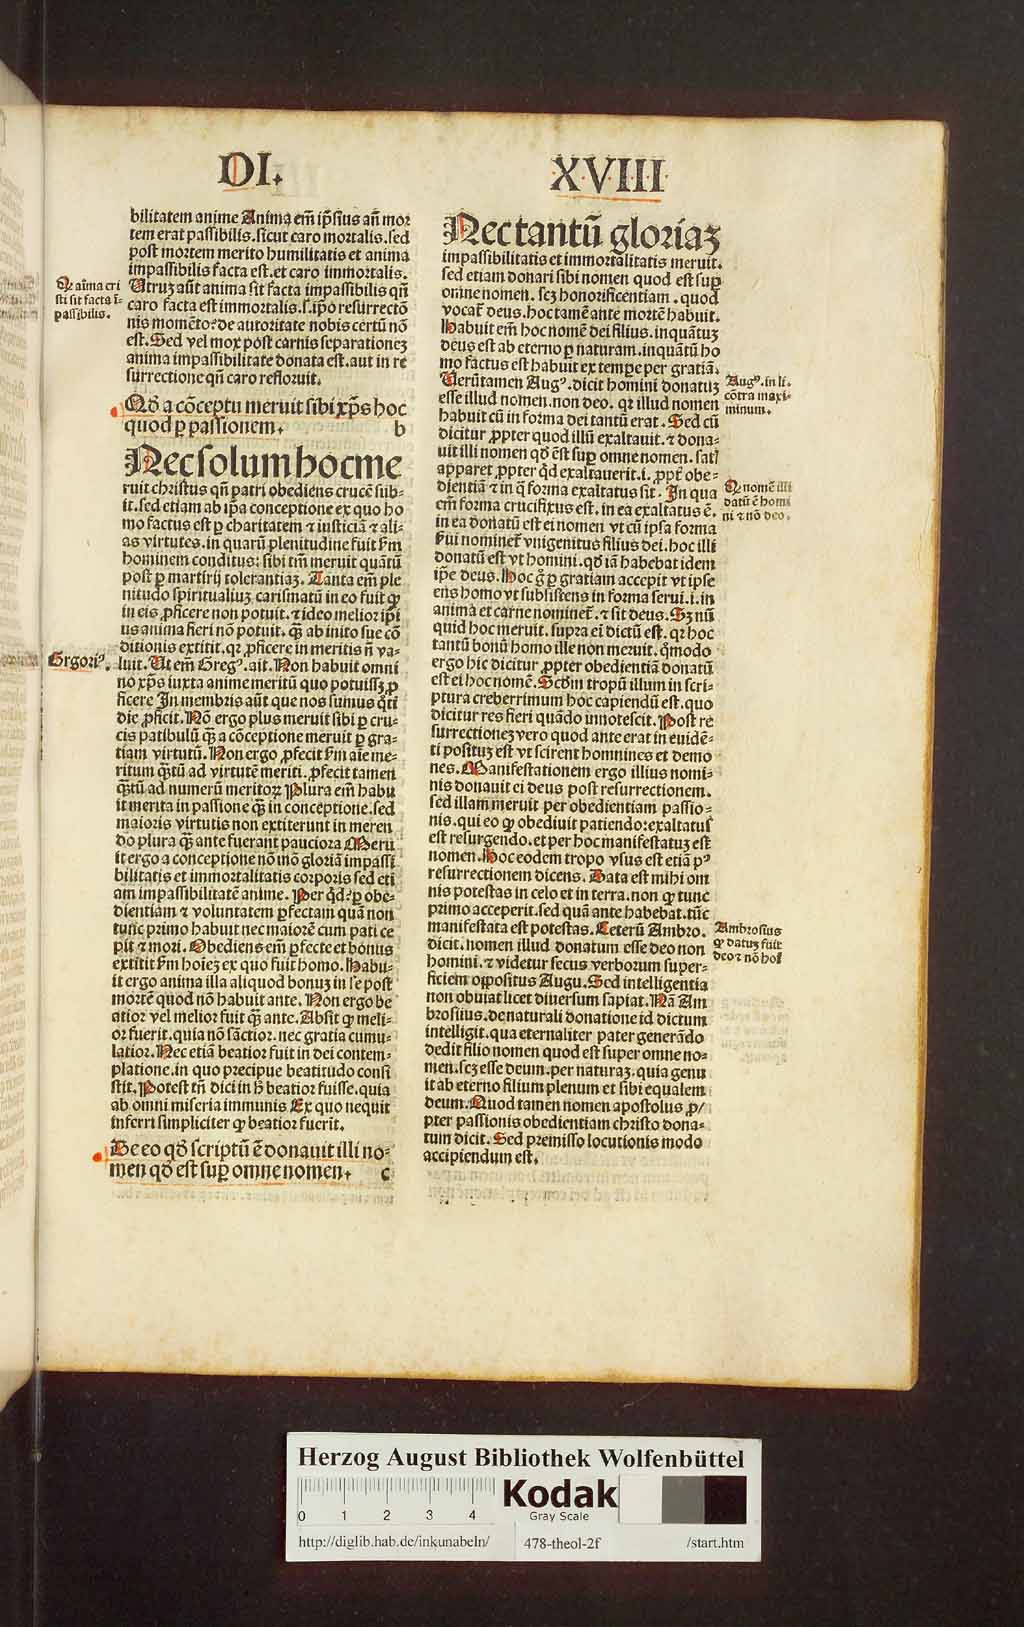 DI.
XVIII
bilitatem anime Anima em̄ ip̄sius an̄ mor
tem erat passibilis. sicut caro mortalis. sed
post mortem merito humilitatis et anima
impassibilis facta est. et caro immortalis.
Utruꝫ aūt anima sit facta impassibilis qn̄
caro facta est immortalis. s. ip̄o resurrectō
nis momēto? de autoritate nobis certū nō
est. Sed vel mox post carnis separationeꝫ
anima impassibilitate donata est. aut in re
surrectione qn̄ caro refloruit.
Q aīma cri
sti sit facta ī-
passibilis.
Qd̄ a cōceptu meruit sibi xp̄s hoc
quod ꝑ passionem. b
Nec solum hoc me
ruit christus qn̄ patri obediens crucē sub-
it. sed etiam ab ip̄a conceptione ex quo ho
mo factus est ꝑ charitatem ⁊ iusticiā ⁊ ali-
as virtutes. in quarū plenitudine fuit ẜm
hominem conditus: sibi tm̄ meruit quātū
post ꝑ martirij tolerantiaꝫ. Tanta em̄ ple
nitudo spiritualiuꝫ carismatū in eo fuit ꝙ
in eis ꝓficere non potuit. ⁊ ideo melior ip̄i
us anima fieri nō potuit. q̄ꝫ ab inito sue cō
ditionis extitit. qꝛ ꝓficere in meritis n̄ va-
luit. Ut em̄ Gregꝰ. ait. Non habuit omni
no xp̄s iuxta anime meritū quo potuissꝫ ꝓ
ficere In membris aūt que nos sumus q̊ti
die ꝓficit. Nō ergo plus meruit sibi ꝑ cru-
cis patibulū q̄ꝫ a cōceptione meruit ꝑ gra-
tiam virtutū. Non ergo ꝓfecit ẜm aīe me-
ritum q̄ꝫtū ad virtutē meriti. ꝓfecit tamen
q̄ꝫtū ad numerū meritoꝝ Plura em̄ habu
it merita in passione q̄ꝫ in conceptione. sed
maioris virtutis non extiterunt in meren
do plura q̄ꝫ ante fuerant pauciora Meru
it ergo a conceptione nō mō gloriā impassi
bilitatis et immortalitatis corporis sed eti
am impassibilitatē anime. Per qd̓? ꝑ obe-
dientiam ⁊ voluntatem ꝑfectam quā non
tunc primo habuit nec maiorē cum pati ce
pit ⁊ mori. Obediens em̄ ꝑfecte et bonus
extitit ẜm hoīeꝫ ex quo fuit homo. Habu-
it ergo anima illa aliquod bonuꝫ in se post
mortē quod nō habuit ante. Non ergo be
atior vel melior fuit q̄ꝫ ante. Absit ꝙ meli-
or fuerit. quia nō sāctior. nec gratia cumu-
latior. Nec etiā beatior fuit in dei contem-
platione. in quo precipue beatitudo consi
stit. Potest tn̄ dici in h̓ beatior fuisse. quia
ab omni miseria immunis Ex quo nequit
inferri simpliciter ꝙ beatior fuerit.
Grgoriꝰ.
De eo qd̄ scriptū ē donauit illi no-
men qd̄ est suꝑ omne nomen. c
Nec tantū gloriaꝫ
impassibilitatis et immortalitatis meruit.
sed etiam donari sibi nomen quod est suꝑ
omne nomen. scꝫ honorificentiam. quod
vocat̄ deus. hoc tamē ante mortē habuit.
Habuit em̄ hoc nomē dei filius. inquātuꝫ
deus est ab eterno ꝑ naturam. inquātū ho
mo factus est habuit ex tempe per gratiā.
Uerūtamen Augꝰ. dicit homini donatuꝫ
esse illud nomen. non deo. qꝛ illud nomen
habuit cū in forma dei tantū erat. Sed cū
dicitur ꝓpter quod illū exaltauit. ⁊ dona-
uit illi nomen qd̄ est suꝑ omne nomen. satꝭ
apparet ꝓpter qd̓ exaltauerit. i. ꝓpt̄ obe-
dientiā ⁊ in q̄ forma exaltatus sit. In qua
em̄ forma crucifixus est. in ea exaltatus ē.
in ea donatū est ei nomen vt cū ipsa forma
ẜui nominet̄ vnigenitus filius dei. hoc illi
donatū est vt homini. qd̄ iā habebat idem
ip̄e deus. Hoc g̊ ꝑ gratiam accepit vt ipse
ens homo vt subsistens in forma serui. i. in
anima et carne nominet̄. ⁊ sit deus. Sꝫ nū
quid hoc meruit. supra ei dictū est. qꝛ hoc
tantū bonū homo ille non meruit. q̄modo
ergo hic dicitur ꝓpter obedientiā donatū
est ei hoc nomē. Scd̄m tropū illum in scri-
ptura creberrimum hoc capiendū est. quo
dicitur res fieri quādo innotescit. Post re
surrectioneꝫ vero quod ante erat in euidē-
ti posituꝫ est vt scirent homnines et demo
nes. Manifestationem ergo illius nomi-
nis donauit ei deus post resurrectionem.
sed illam meruit per obedientiam passio-
nis. qui eo ꝙ obediuit patiendo: exaltatus
est resurgendo. et per hoc manifestatuꝫ est
nomen. Hoc eodem tropo vsus est etiā pꝰ
resurrectionem dicens. Data est mihi om
nis potestas in celo et in terra. non ꝙ tunc
primo acceperit. sed quā ante habebat. tūc
manifestata est potestas. Ceterū Ambro.
dicit. nomen illud donatum esse deo non
homini. ⁊ videtur secus verborum super-
ficiem oppositus Augu. Sed intelligentia
non obuiat licet diuersum sapiat. Nā Am
brosius. de naturali donatione id dictum
intelligit. qua eternaliter pater generādo
dedit filio nomen quod est super omne no-
men. scꝫ esse deum. per naturaꝫ. quia genu
it ab eterno filium plenum et sibi equalem
deum. Quod tamen nomen apostolus ꝓ/
pter passionis obedientiam christo dona-
tum dicit. Sed premisso locutionis modo
accipiendum est.
Augꝰ. in li.
cōtra maxi-
minum.
Q nomē illi
datū ē homi
ni ⁊ nō deo.
Ambrosius
ꝙ datuꝫ fuit
deo ⁊ nō hoī
Herzog August Bibliothek Wolfenbüttel
0 1 2 3 4
Kodak
Gray Scale
http://diglib.hab.de/inkunabeln/ 478-theol-2f /start.htm